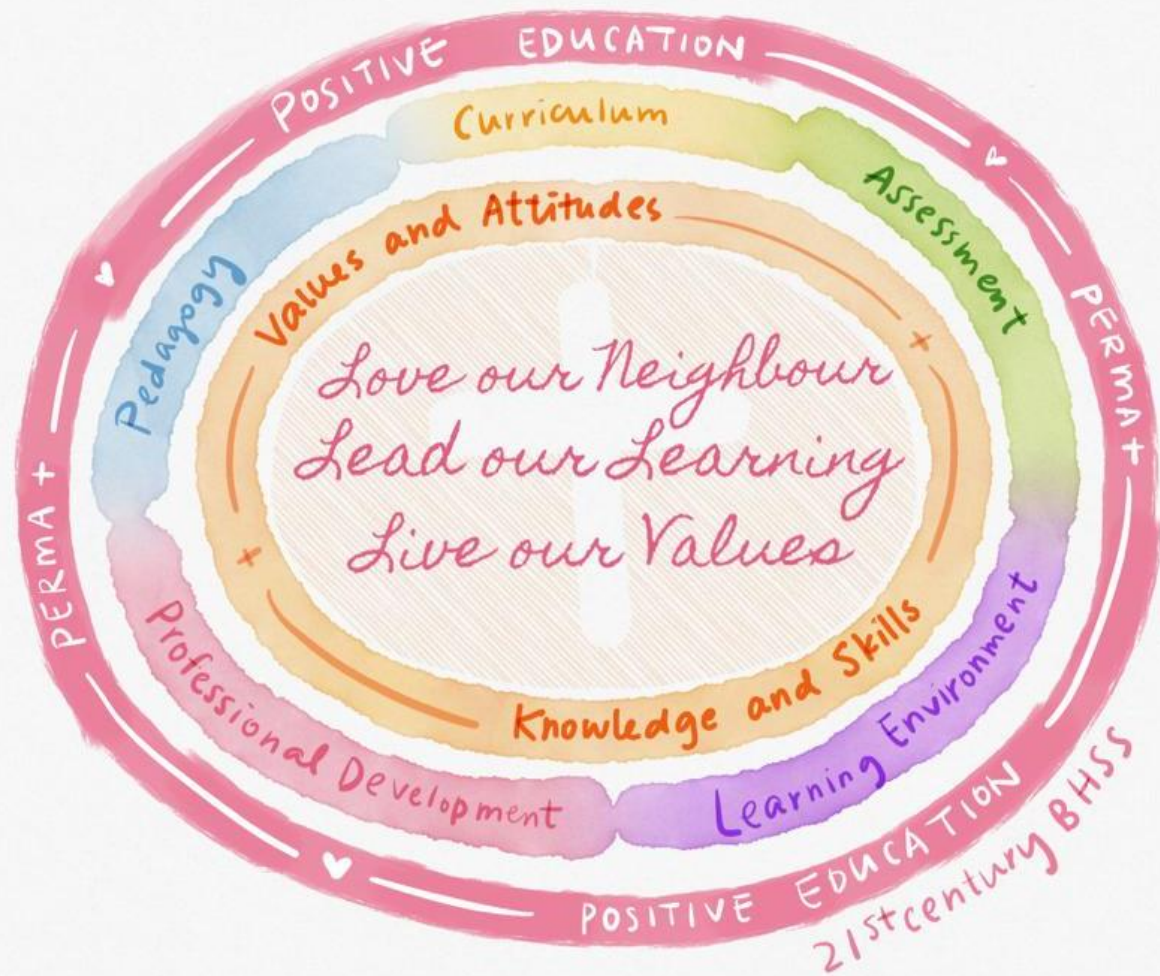 POSITIVE EDUCATION
PERMA+
POSITIVE EDUCATION
PERMA+
Curriculum
Assessment
Learning Environment
Professional Development
Pedagogy
Values and Attitudes
Knowledge and Skills
Love our Neighbour
Lead our Learning
Live our Values
21st century BHSS